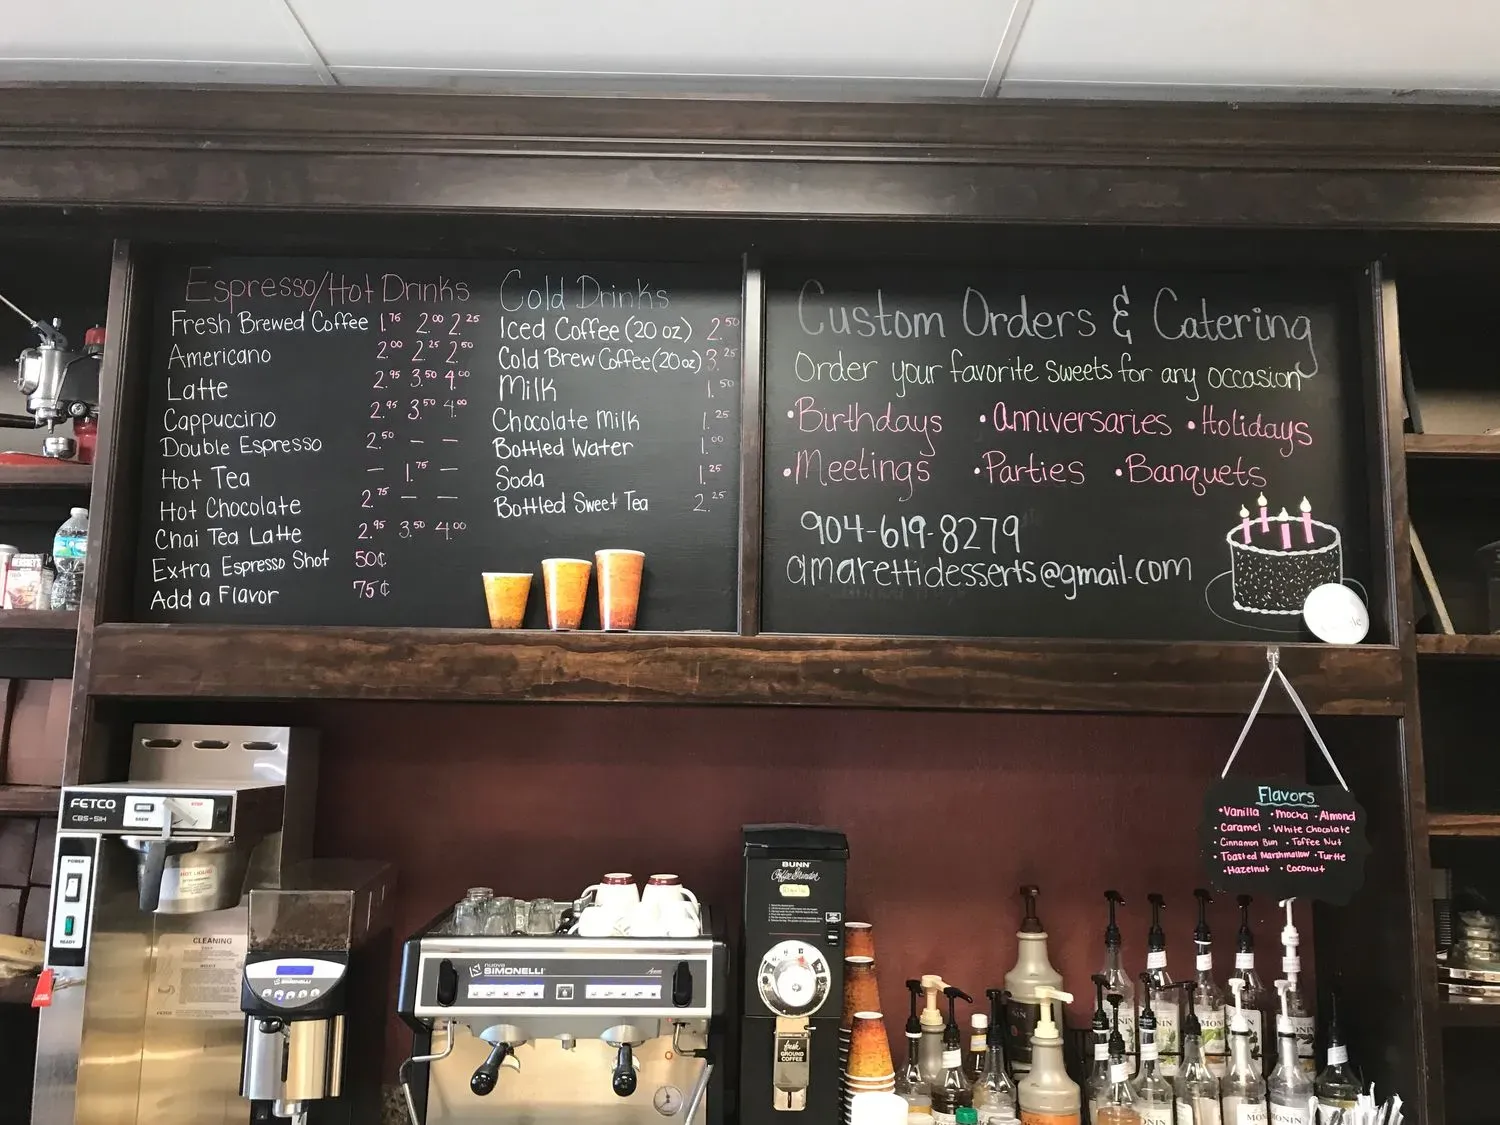 Espresso/Hot Drinks
Fresh Brewed Coffee 1.75 2.00 2.25
Americano 2.00 2.25 2.50
Latte 2.95 3.50 4.00
Cappuccino 2.95 3.50 4.00
Double Espresso 2.50 — —
Hot Tea — 1.75 —
Hot Chocolate 2.75 — —
Chai Tea Latte 2.95 3.50 4.00
Extra Espresso Shot 50¢
Add a Flavor 75¢
Cold Drinks
Iced Coffee (20 oz) 2.50
Cold Brew Coffee (20oz) 3.25
Milk 1.50
Chocolate Milk 1.25
Bottled Water 1.00
Soda 1.25
Bottled Sweet Tea 2.25
Custom Orders & Catering
Order your favorite sweets for any occasion
•Birthdays •Anniversaries •Holidays
•Meetings •Parties •Banquets
904-619-8279
amarettidesserts@gmail.com
Flavors
•Vanilla •Mocha •Almond
•Caramel •White Chocolate
•Cinnamon Bun •Toffee Nut
•Toasted Marshmallow •Turtle
•Hazelnut •Coconut
HERSHEY'S
FETCO
CBS-51H
BREW
STOP
POWER
READY
HOT LIQUID
CLEANING
FETCO
SIMONELLI
nuova
SIMONELLI
BUNN
Coffee Grinder
fresh
GROUND
COFFEE
MONIN
MONIN